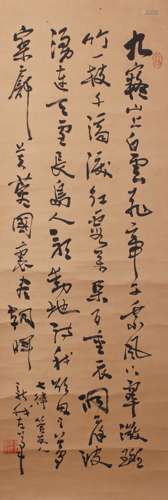 九嶷山上白雲飛帝子乘風下翠微斑
竹一枝千滴淚紅霞萬朵百重衣洞庭波
湧連天雪長島人歌動地詩我欲因之夢
寥廓芙蓉國裏盡朝暉
七律答友人